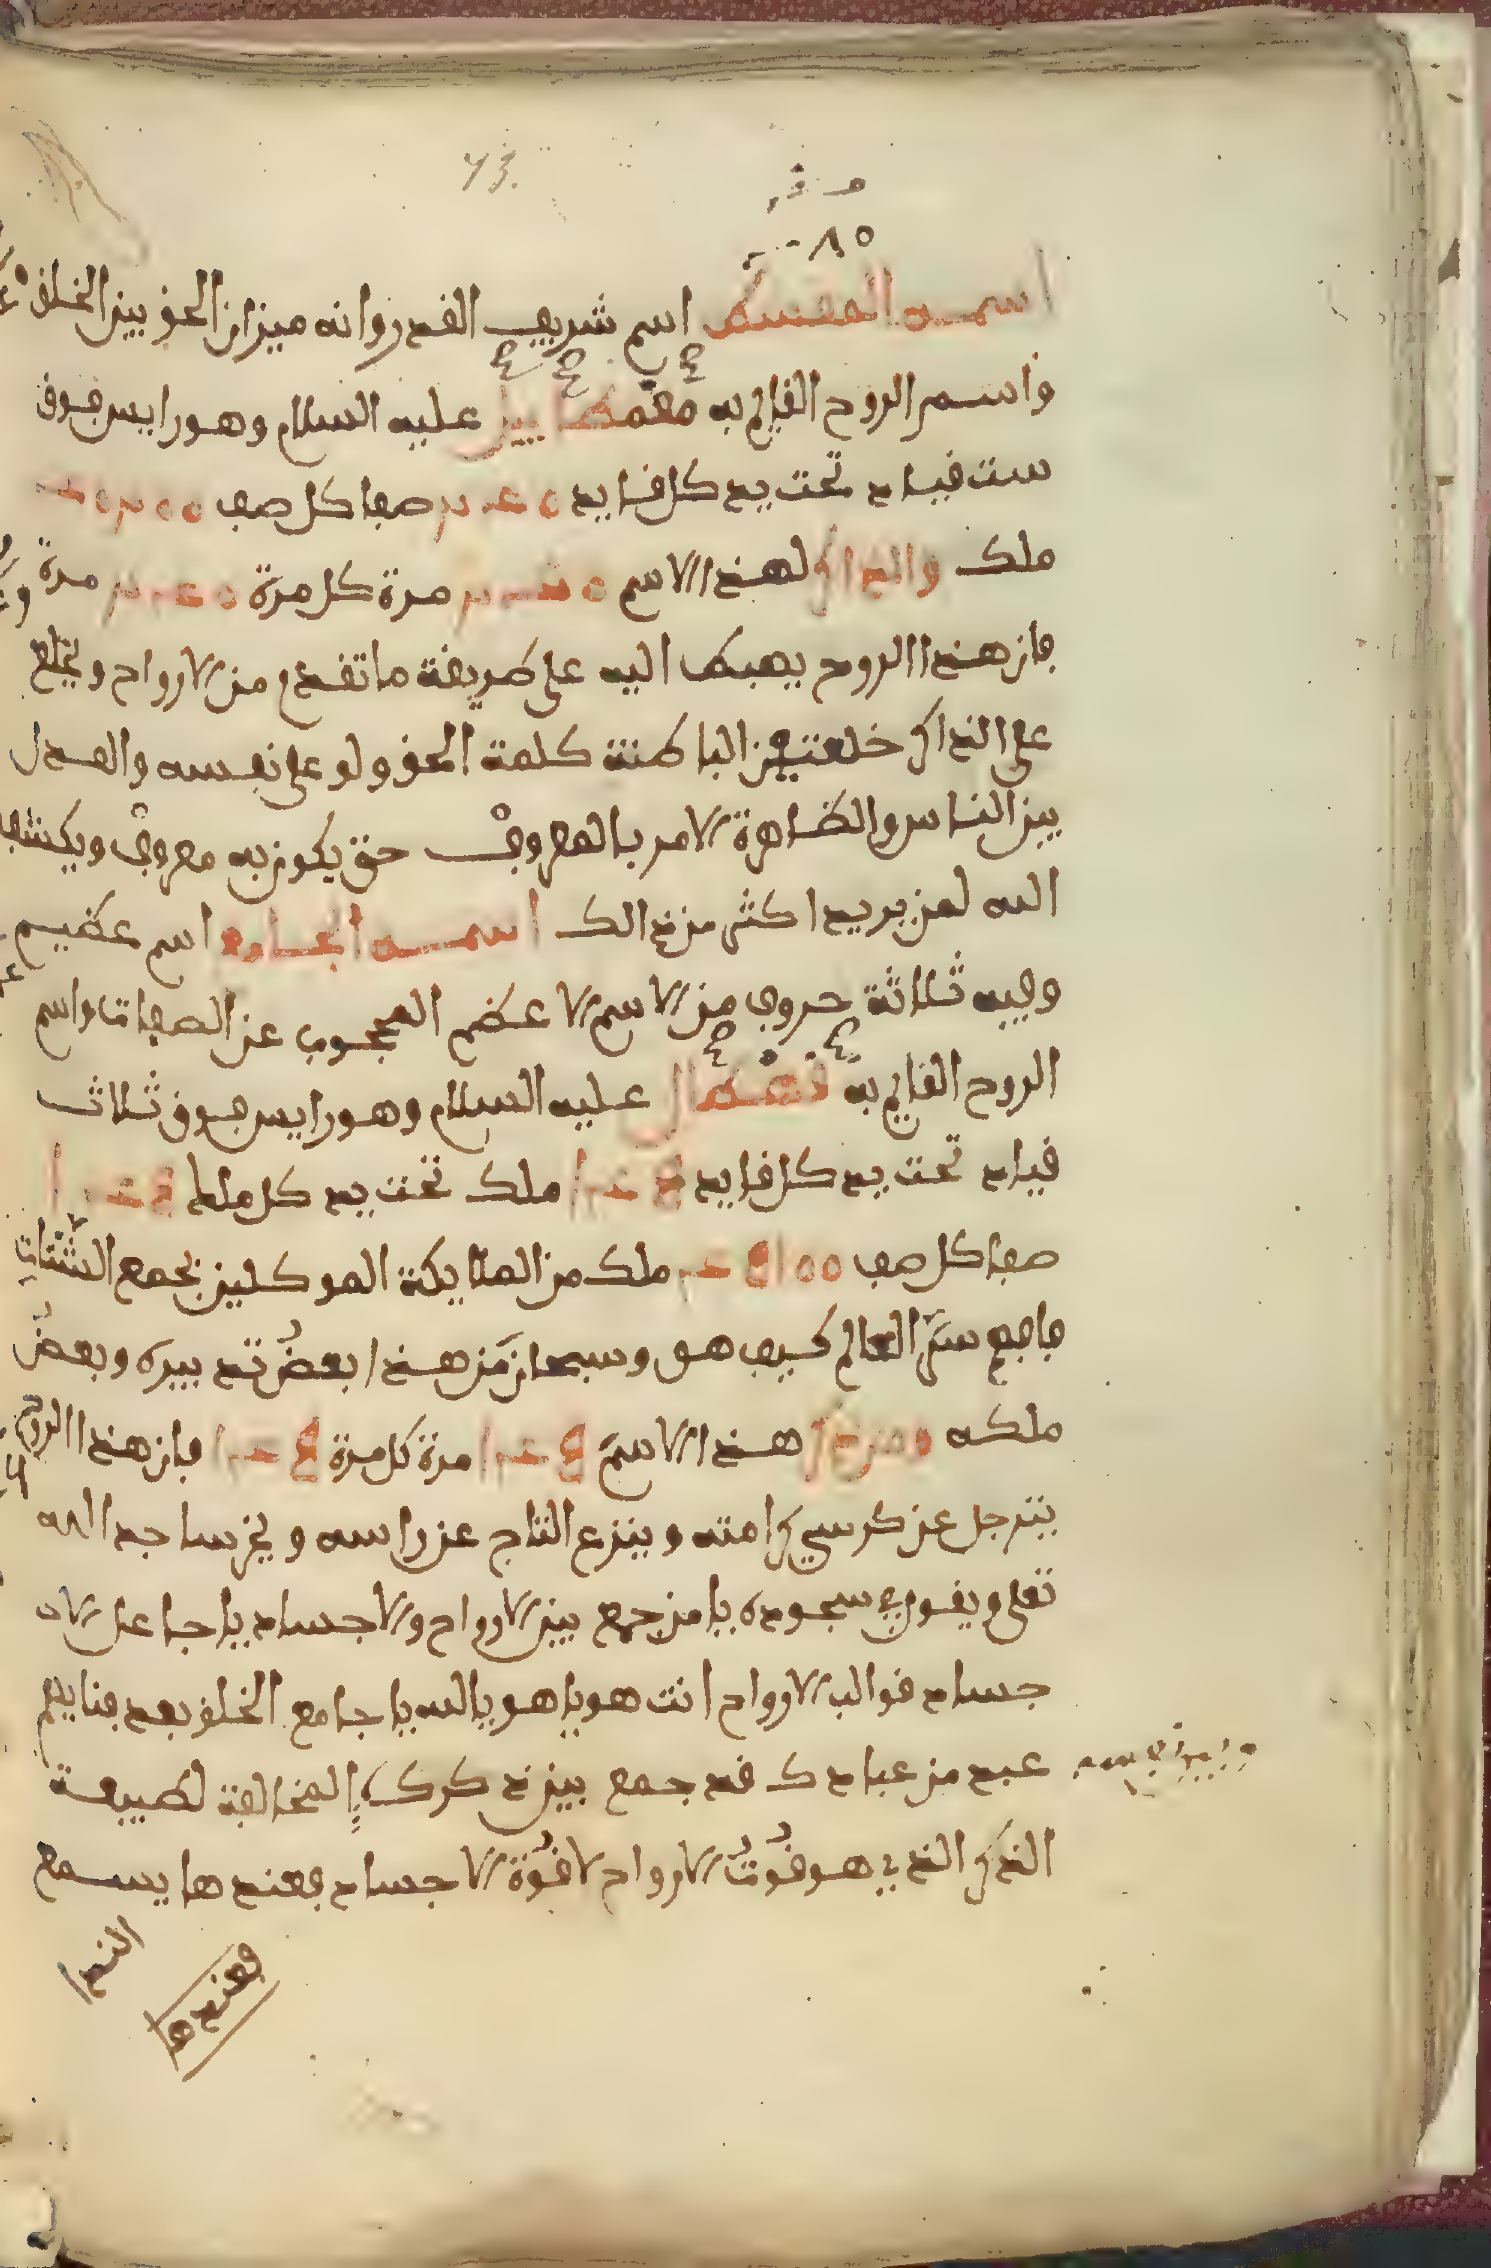 73
اسمه المقسط اسم شريف القدر وانه ميزان الحق بين الخلق
واسم الروح القايم به عليه السلام وهو رايس فوق
ست قياد تحت يد كل قايد صفا كل صف
ملك والذاكر لهذا الاسم مرة كل مرة مرة
فان هذا الروح يهبط اليه على طريقة ما تقدم من الارواح ويخلع
على الذاكر خلعتين الباطنة كلمة الحق ولو على نفسه والعدل
بين الناس والظاهرة الامر بالمعروف حتى يكون به معروف ويكشف
الله لمن يريد اكثر من ذالك اسمه الجامع اسم عظيم
وفيه ثلاثة حروف من الاسم الاعظم المحجوب عن الصفات واسم
الروح القايم به عليه السلام وهو رايس فوق ثلاث
قياد تحت يد كل قايد ملك تحت يد كل ملك
صفا كل صف ملك من الملايكة الموكلين بجمع الشتات
فافهم سر العالم كيف هو وسبحان من هذا بعض تدبيره وبعض
ملكه ومن ذكر هذا الاسم مرة كل مرة فان هذا الروح
يترجل عن كرسي كرامته وينزع التاج عن راسه ويخر ساجد الله
تعلى ويقول في سجوده يا من جمع بين الارواح والاجساد يا جاعل الا
جساد قوالب الارواح انت هو يا هو يا الله يا جامع الخلق بعد فنايهم
عبد من عبادك قد جمع بين ذكرك المخالفة لطبيعة
الذكر الذي هو قوت الارواح لا قوة الاجساد فعندها يسمع
الندا
فعندها